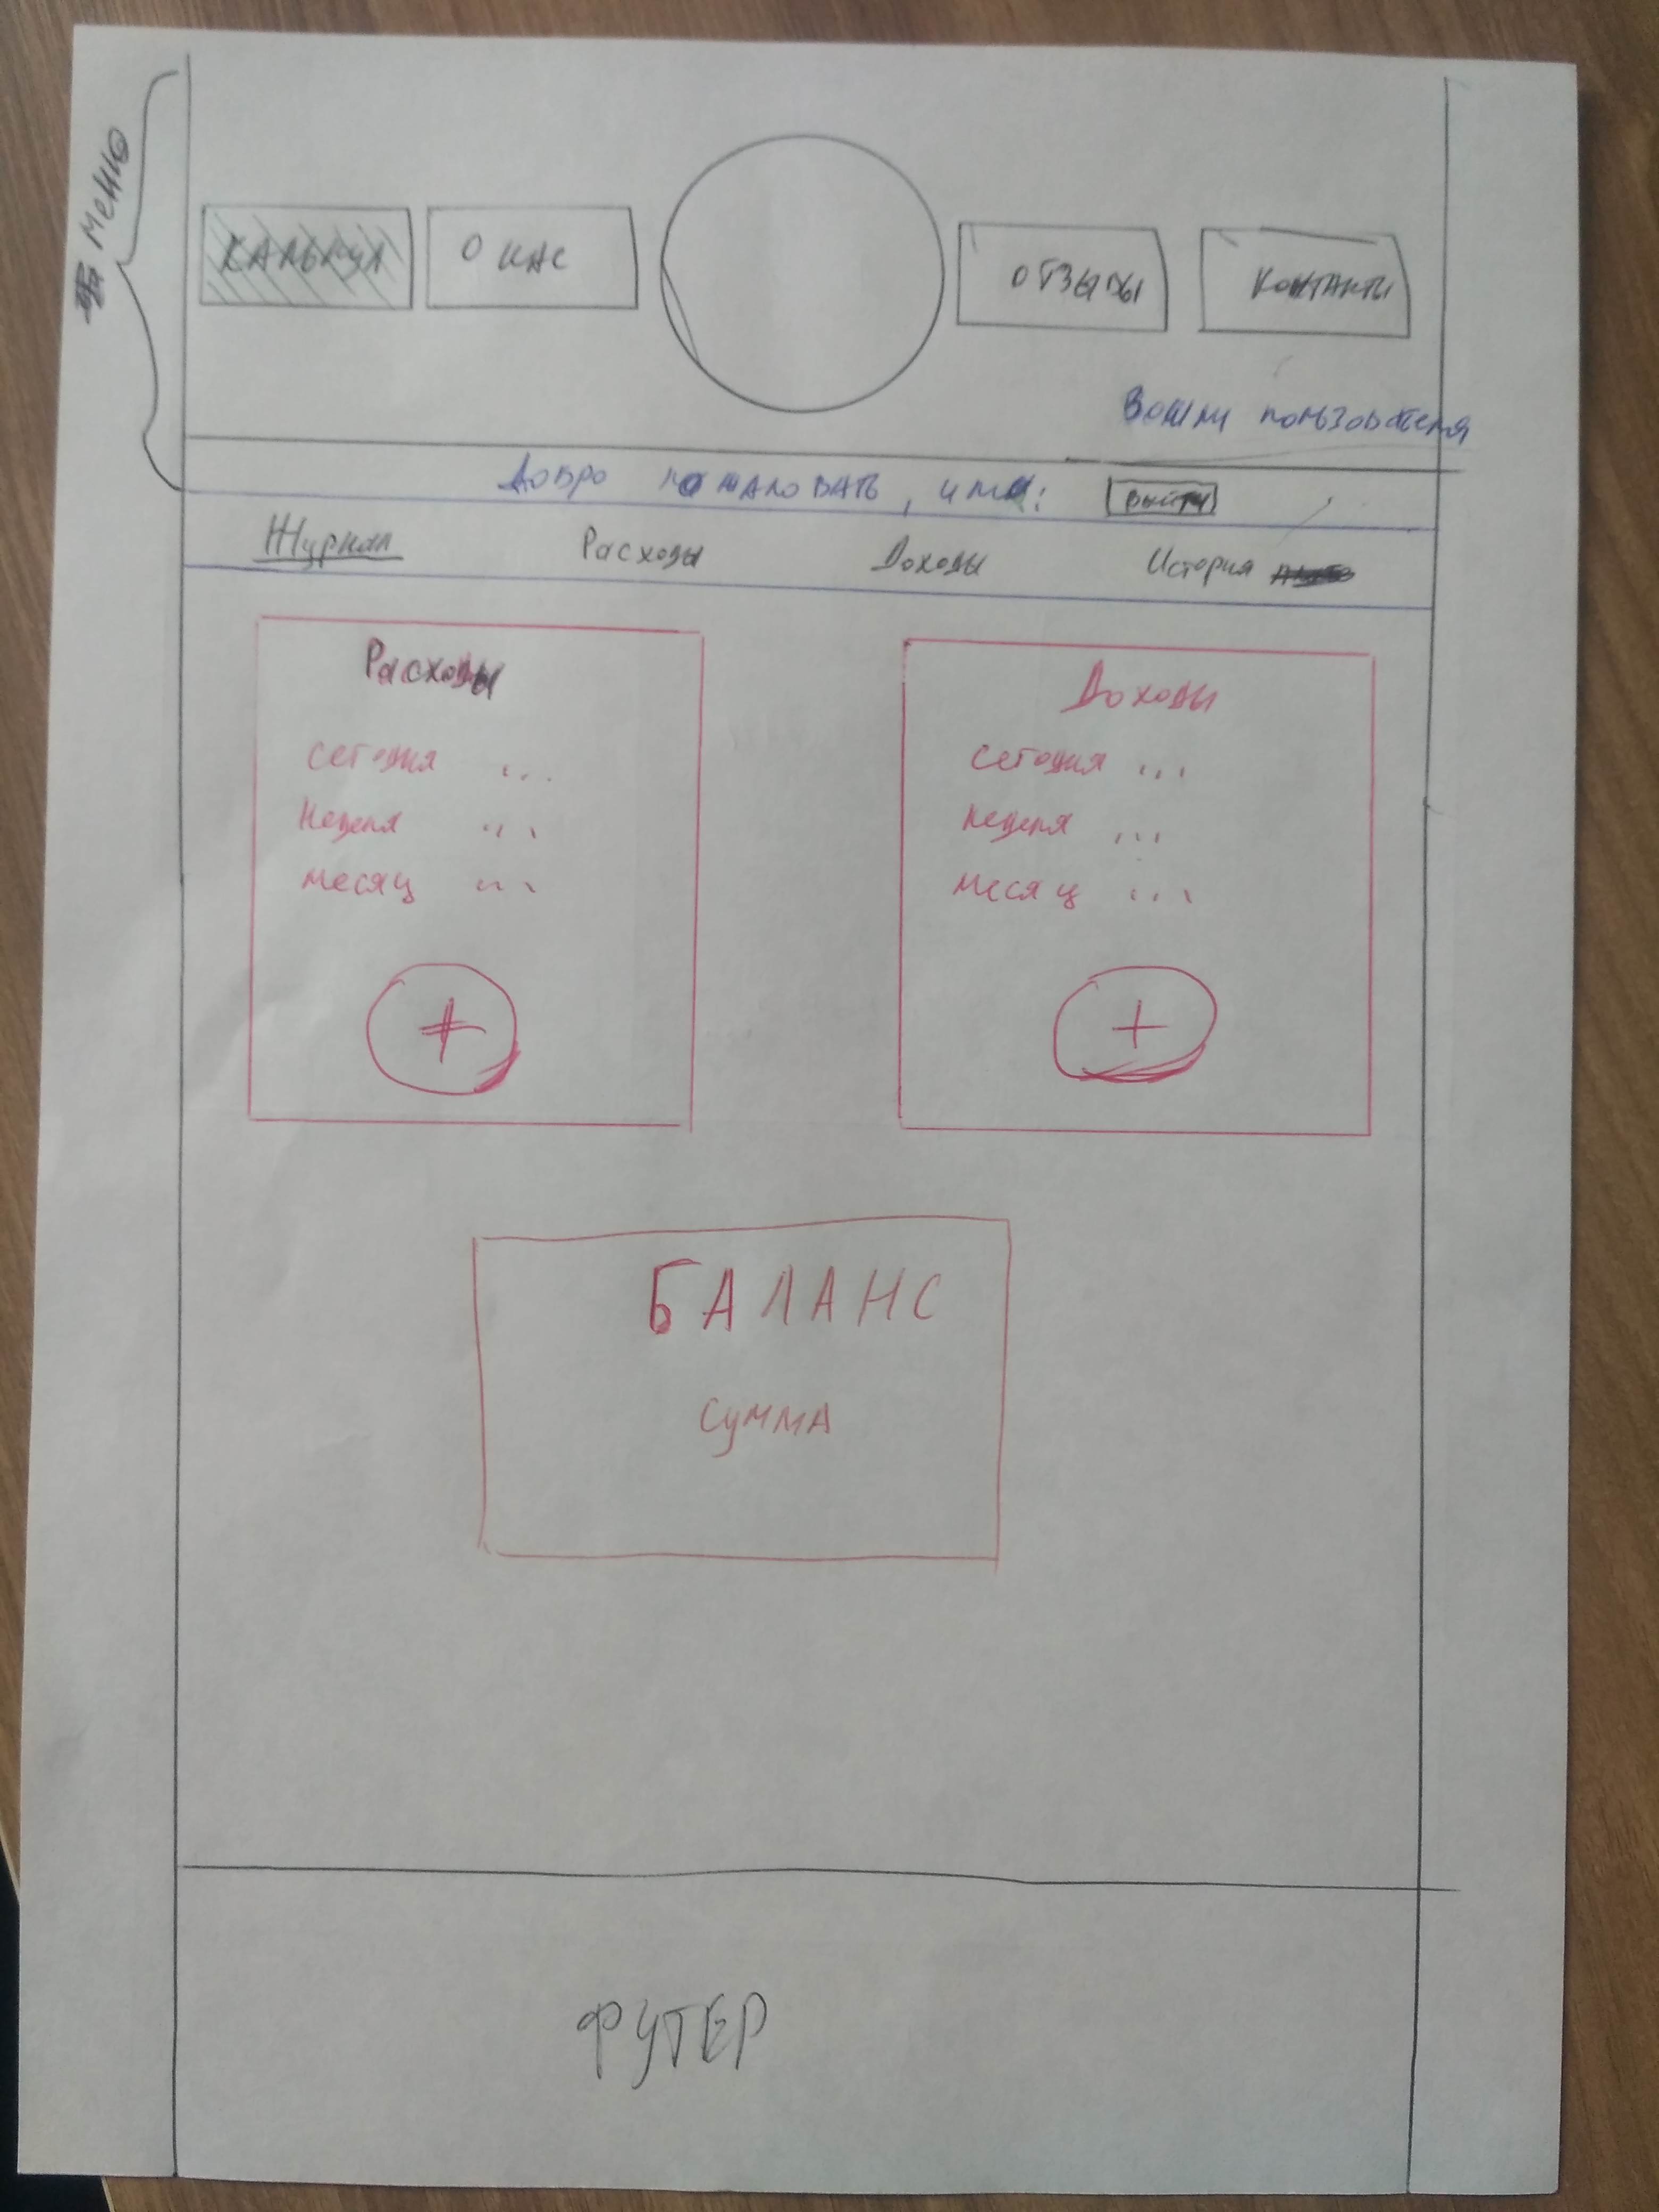 меню
КАЛЬКУЛ
О НАС
ОТЗЫВЫ
КОНТАКТЫ
Вошли пользователя
Добро пожаловать, имя:
выйти
Журнал Расходы Доходы История
Расходы
сегодня ...
неделя ...
месяц ...
+
Доходы
сегодня ...
неделя ...
месяц ...
+
БАЛАНС
сумма
ФУТЕР